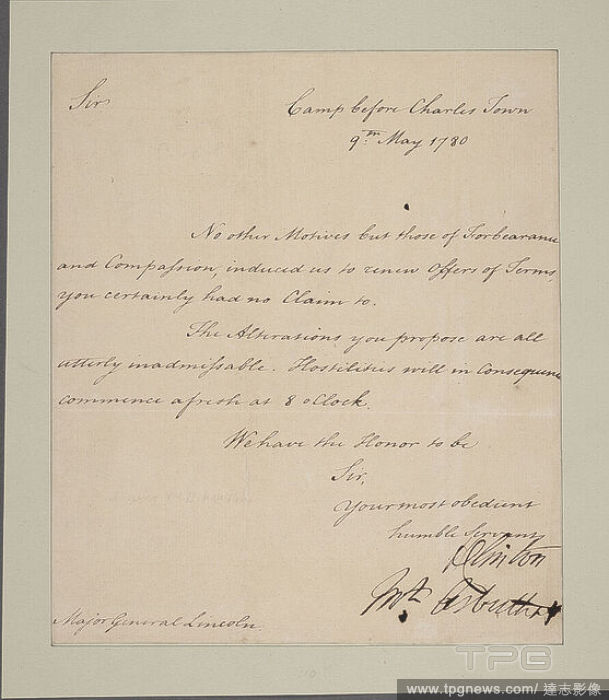 Sir
Camp before Charles Town
9th May 1780
No other Motives but those of Forbearance
and Compassion, induced us to renew Offers of Terms,
you certainly had no Claim to.
The Alterations you propose are all
utterly inadmissable. Hostilities will in Consequence
commence afresh at 8 oClock.
We have the Honor to be
Sir,
Your most obedient
humble Servants
HClinton
Mt Arbuthnot
Major General Lincoln.
TPG
www.tpgnews.com / 達志影像